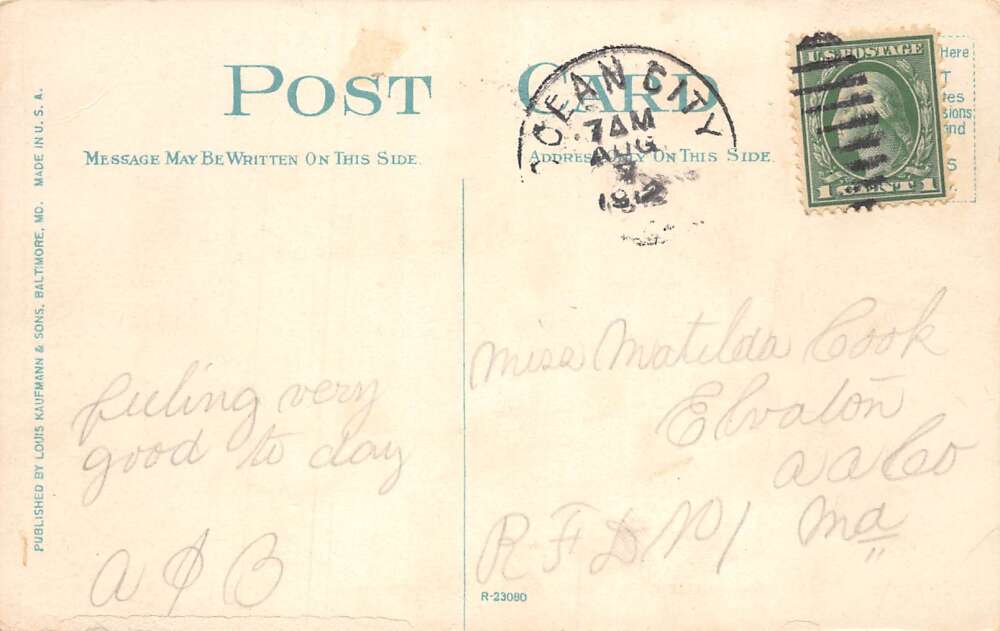 PUBLISHED BY LOUIS KAUFMANN & SONS, BALTIMORE, MD. MADE IN U. S. A.
POST CARD
MESSAGE MAY BE WRITTEN ON THIS SIDE.
ADDRESS ONLY ON THIS SIDE
OCEAN CITY
7 AM
AUG
1912
U.S. POSTAGE
1 CENT 1
Here
feeling very
good to day
Miss Matilda Cook
Elvaton
A A Co
R F D No 1 Md
R-23080